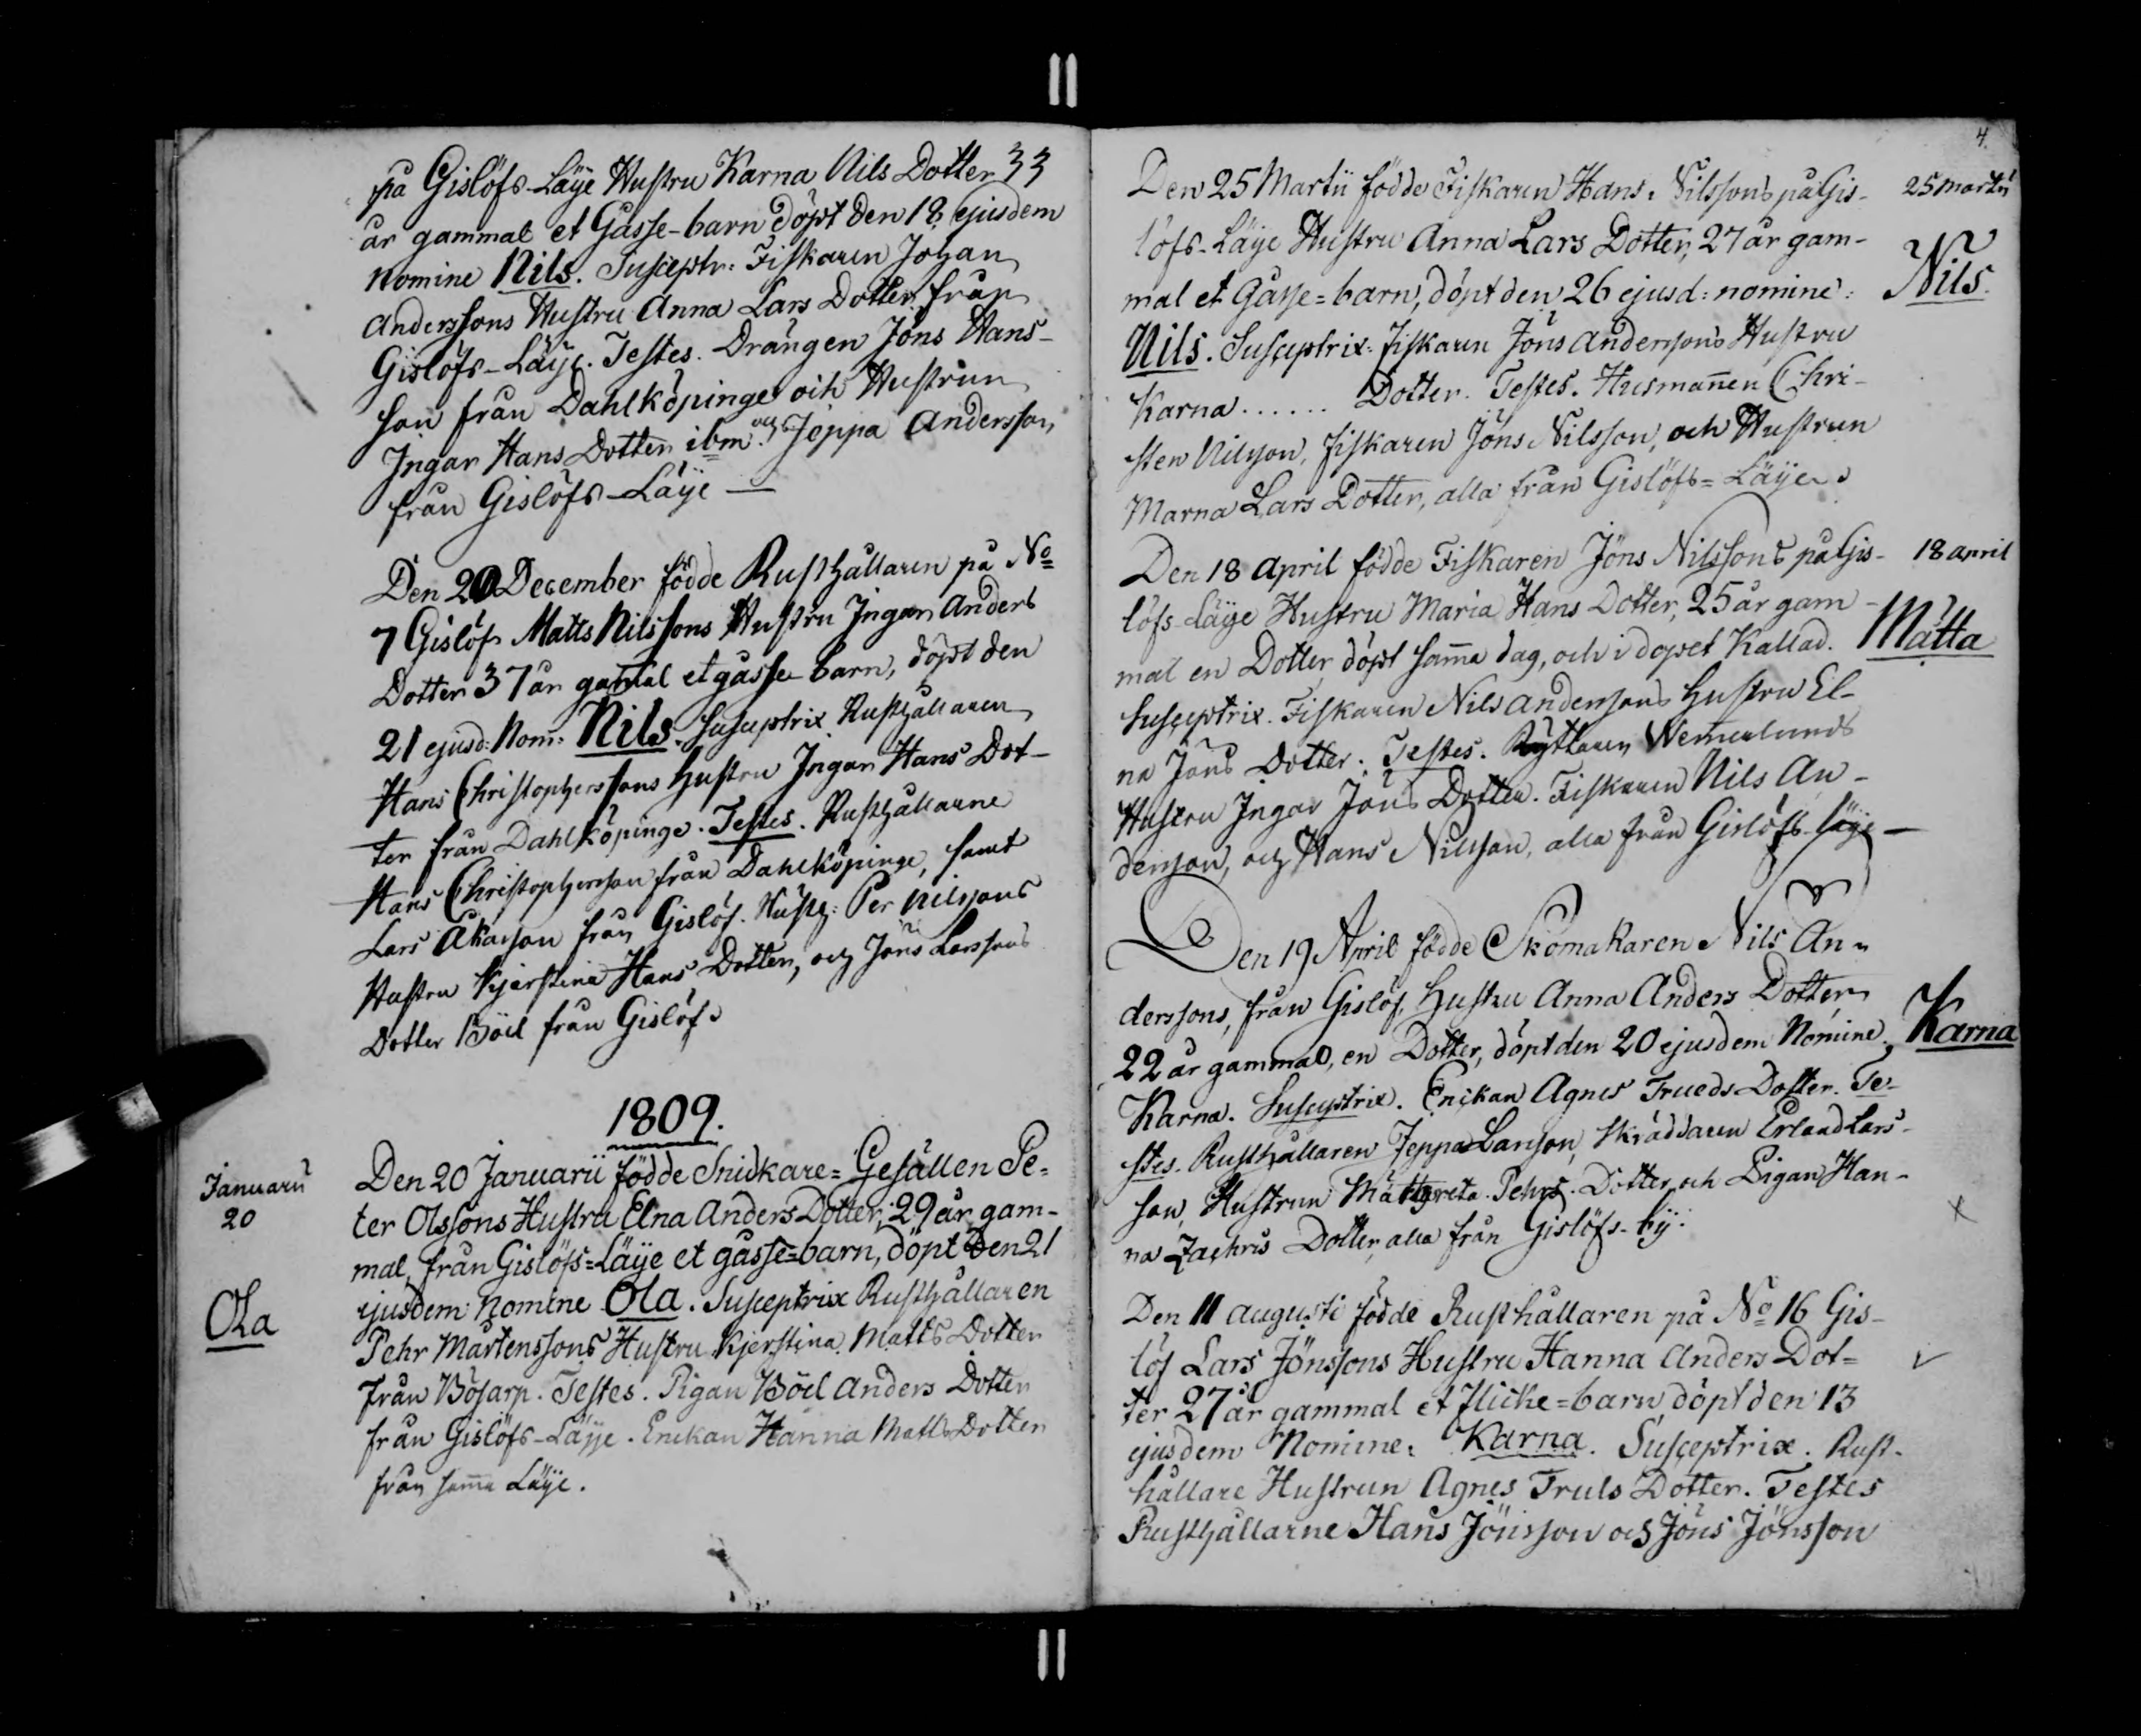 på Gislöfs-Läÿe Hustru Karna Nils Dotter 33
år gammal et Gåsse-barn döpt den 18 ejusdem
nomine Nils. Susceptr: Fiskaren Johan
Anderssons Hustru Anna Lars Dotter från
Gislöfs-Läÿe. Testes. Drängen Jöns Hans-
son från Dahlköpinge och Hustrun
Ingar Hans Dotter ibm och Jeppa Andersson
från Gislöfs-Läÿe —
Den 20 December födde Rusthållaren på No
7 Gislöf Matts Nilssons Hustru Ingar Anders
Dotter 37 år gamal et gåsse barn, döpt den
21 ejusd: Nom: Nils. Susceptrix Rusthållaren
Hans Christopherssons Hustru Ingar Hans Dot-
ter från Dahlköpinge. Testes. Rusthållarne
Hans Christophersson från Dahlköpinge, samt
Lars Åkasson från Gislöf. Rusth: Per Nilssons
Hustru Kjerstina Hans Dotter, och Jöns Larssons
Dotter Böel från Gislöf.
1809.
Januarii
20
Den 20 Januarii födde Snidkare=Gesällen Pe=
ter Olssons Hustru Elna Anders Dotter, 29 år gam-
mal, från Gislöfs=Läÿe et gåsse=barn, döpt den 21
ejusdem Nomine Ola. Susceptrix Rusthållaren
Ola
Pehr Mårtenssons Hustru Kjerstina Matts Dotter
från Bösarp. Testes. Pigan Böel Anders Dotter
från Gislöfs-Läÿe. Enckan Hanna Matts Dotter
från samma Läÿe.
4.
Den 25 Martii födde Fiskaren Hans Nilssons på Gis-
25 Martii
löfs-Läÿe Hustru Anna Lars Dotter, 27 år gam-
mal et Gåsse=barn, döpt den 26 ejusd: nomine:
Nils.
Nils. Susceptrix: Fiskaren Jöns Anderssons Hustru
Karna ...... Dotter. Testes. Husmannen Chri-
sten Nilsson, Fiskaren Jöns Nilsson, och Hustrun
Marna Lars Dotter, alla från Gislöfs=Läÿe.
Den 18 April födde Fiskaren Jöns Nilssons på Gis-
18 April
löfs-Läÿe Hustru Maria Hans Dotter, 25 år gam-
mal en Dotter, döpt samma dag, och i dopet Kallad.
Mätta
Susceptrix. Fiskaren Nils Anderssons Hustru El-
na Jöns Dotter. Testes. Ryttaren Wennerlunds
Hustru Ingar Jöns Dotter. Fiskaren Nils An-
dersson, och Hans Nilsson, alla från Gislöfs-läÿe —
Den 19 April födde Skomakaren Nils An-
derssons, från Gislöf, Hustru Anna Anders Dotter,
22 år gammal, en Dotter, döpt den 20 ejusdem Nomine,
Karna
Karna. Susceptrix. Enckan Agnes Trueds Dotter. Te-
stes. Rusthållaren Jeppa Larsson, Skräddaren Erland Lars-
son, Hustrun Pehrs Dotter och Pigan Han-
na Zachris Dotter, alla från Gislöfs-bÿ.
Den 11 Augusti födde Rusthållaren på No 16 Gis-
löf Lars Jönssons Hustru Hanna Anders Dot=
ter 27 år gammal et flicke=barn döpt den 13
ejusdem Nomine: Karna. Susceptrix. Rust-
hållare Hustrun Agnes Truls Dotter. Testes
Rusthållarne Hans Jönsson och Jöns Jönsson